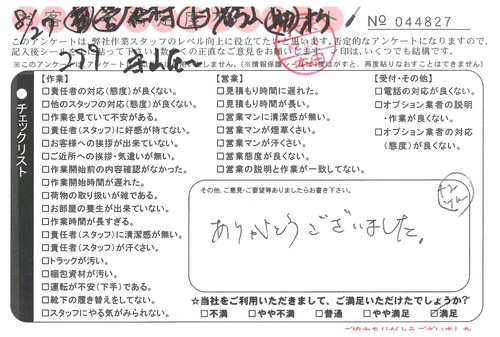 8/29
№ 044827
このアンケートは、弊社作業スタッフのレベル向上に役立てたいと思います。否定的なアンケートになりますので、
記入後シールを貼って下さい。数多くの正直なご意見をお聞かせ下さい。✓印は、いくつでも結構です。
チェックリスト
【作業】
□責任者の対応(態度)が良くない。
□他のスタッフの対応(態度)が良くない。
□作業を見ていて不安がある。
□責任者(スタッフ)に好感が持てない。
□お客様への挨拶が出来ていない。
□ご近所への挨拶・気遣いが無い。
□作業開始前の内容確認がなかった。
□作業開始時間が遅れた。
□荷物の取り扱いが雑である。
□お部屋の養生が出来ていない。
□作業時間が長すぎる。
□責任者(スタッフ)に清潔感が無い。
□責任者(スタッフ)が汗くさい。
□トラックが汚い。
□梱包資材が汚い。
□運転が不安(下手)である。
□靴下の履き替えをしてない。
□スタッフにやる気がみられない。
【営業】
□見積もり時間に遅れた。
□見積もり時間が長い。
□営業マンに清潔感が無い。
□営業マンが煙草くさい。
□営業マンが汗くさい。
□営業態度が良くない。
□営業の説明と作業が一致してない。
【受付・その他】
□電話の対応が良くない。
□オプション業者の説明
・作業が良くない。
□オプション業者の対応
(態度)が良くない。
その他、ご意見・ご要望等ありましたらお書き下さい。
ありがとうございました。
☆当社をご利用いただきまして、ご満足いただけたでしょうか?
□不満 □やや不満 □普通 □やや満足 ☑満足
ご協力ありがとうございました